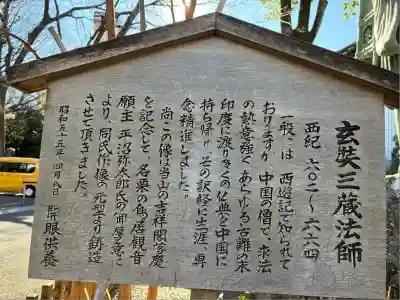 玄奘三蔵法師
西紀 六〇二～六六四
一般には西遊記で知られて
おりますが 中国の僧で、求法
の熱意強く あらゆる苦難の末
印度に渡り多くの仏典を中国に
持ち帰り その訳経に生涯、専
念精進しました。
尚、この像は当山の吉祥閣落慶
を記念して 名栗の鳥居観音
願主 平沼弥太郎氏の御厚意に
より、同氏作像の元型より鋳造
させて頂きました。
昭和五十五年 四月八日 開眼供養